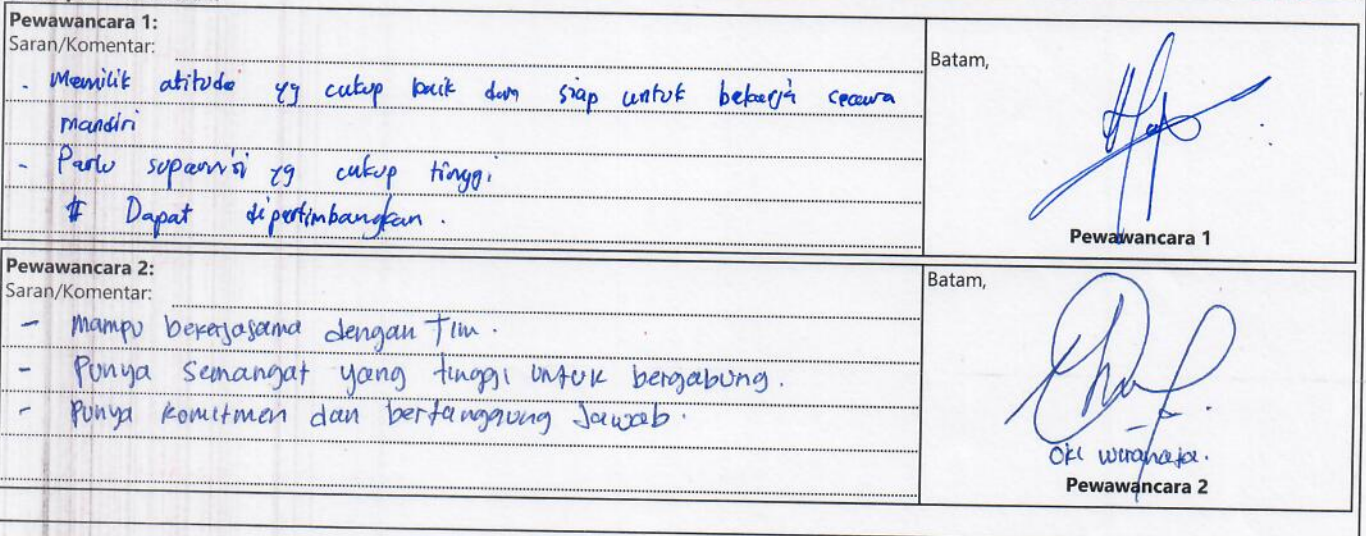 Pewawancara 1:
Saran/Komentar:
Batam,
- Memilik atitude yg cukup baik dan siap untuk bekerja secara
mandiri
- Perlu supervisi yg cukup tinggi
# Dapat dipertimbangkan.
Pewawancara 1
Pewawancara 2:
Saran/Komentar:
Batam,
- Mampu bekerjasama dengan Tim.
- Punya semangat yang tinggi untuk bergabung.
- Punya komitmen dan bertanggung Jawab.
Oki
Pewawancara 2